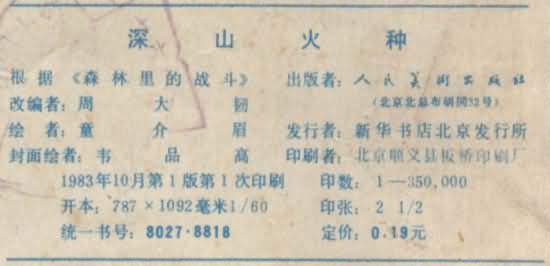 深山火种
根据《森林里的战斗》 出版者：人民美术出版社
改编者：周大韧 （北京北总布胡同32号）
绘者：童介眉 发行者：新华书店北京发行所
封面绘者：韦品高 印刷者：北京顺义县板桥印刷厂
1983年10月第1版第1次印刷 印数：1—350,000
开本：787×1092毫米1/60 印张：2 1/2
统一书号：8027·8818 定价：0.19元